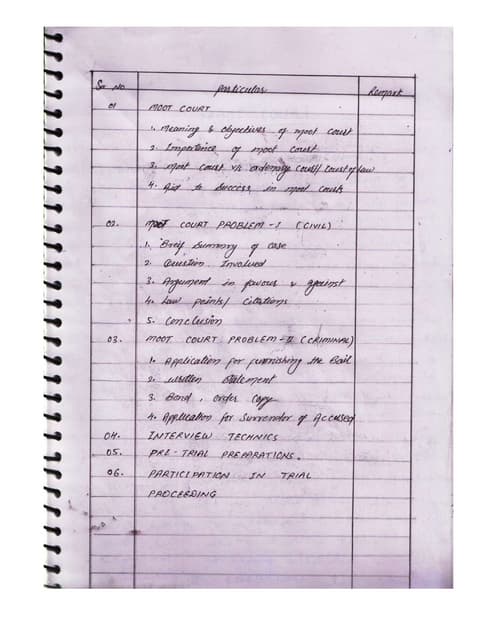 Sr. No. Particulas Remark
01 MOOT COURT
1. Meaning & objectives of moot court
2. Importance of moot court
3. Moot Court v/s ordenary Court/ Court of law
4. Aid to success in moot courts
02. MOOT COURT PROBLEM - I (CIVIL)
1. Brief Summary of case
2. Question Involved
3. Argument in favour & against
4. Law points/ Citations
5. Conclusion
03. MOOT COURT PROBLEM - II (CRIMINAL)
1. Application for furnishing the Bail
2. written statement
3. Bond, order Copy
4. Application for Surrender of Accused
04. INTERVIEW TECHNICS
05. PRE-TRIAL PREPARATIONS.
06. PARTICIPATION IN TRIAL
PROCEEDING